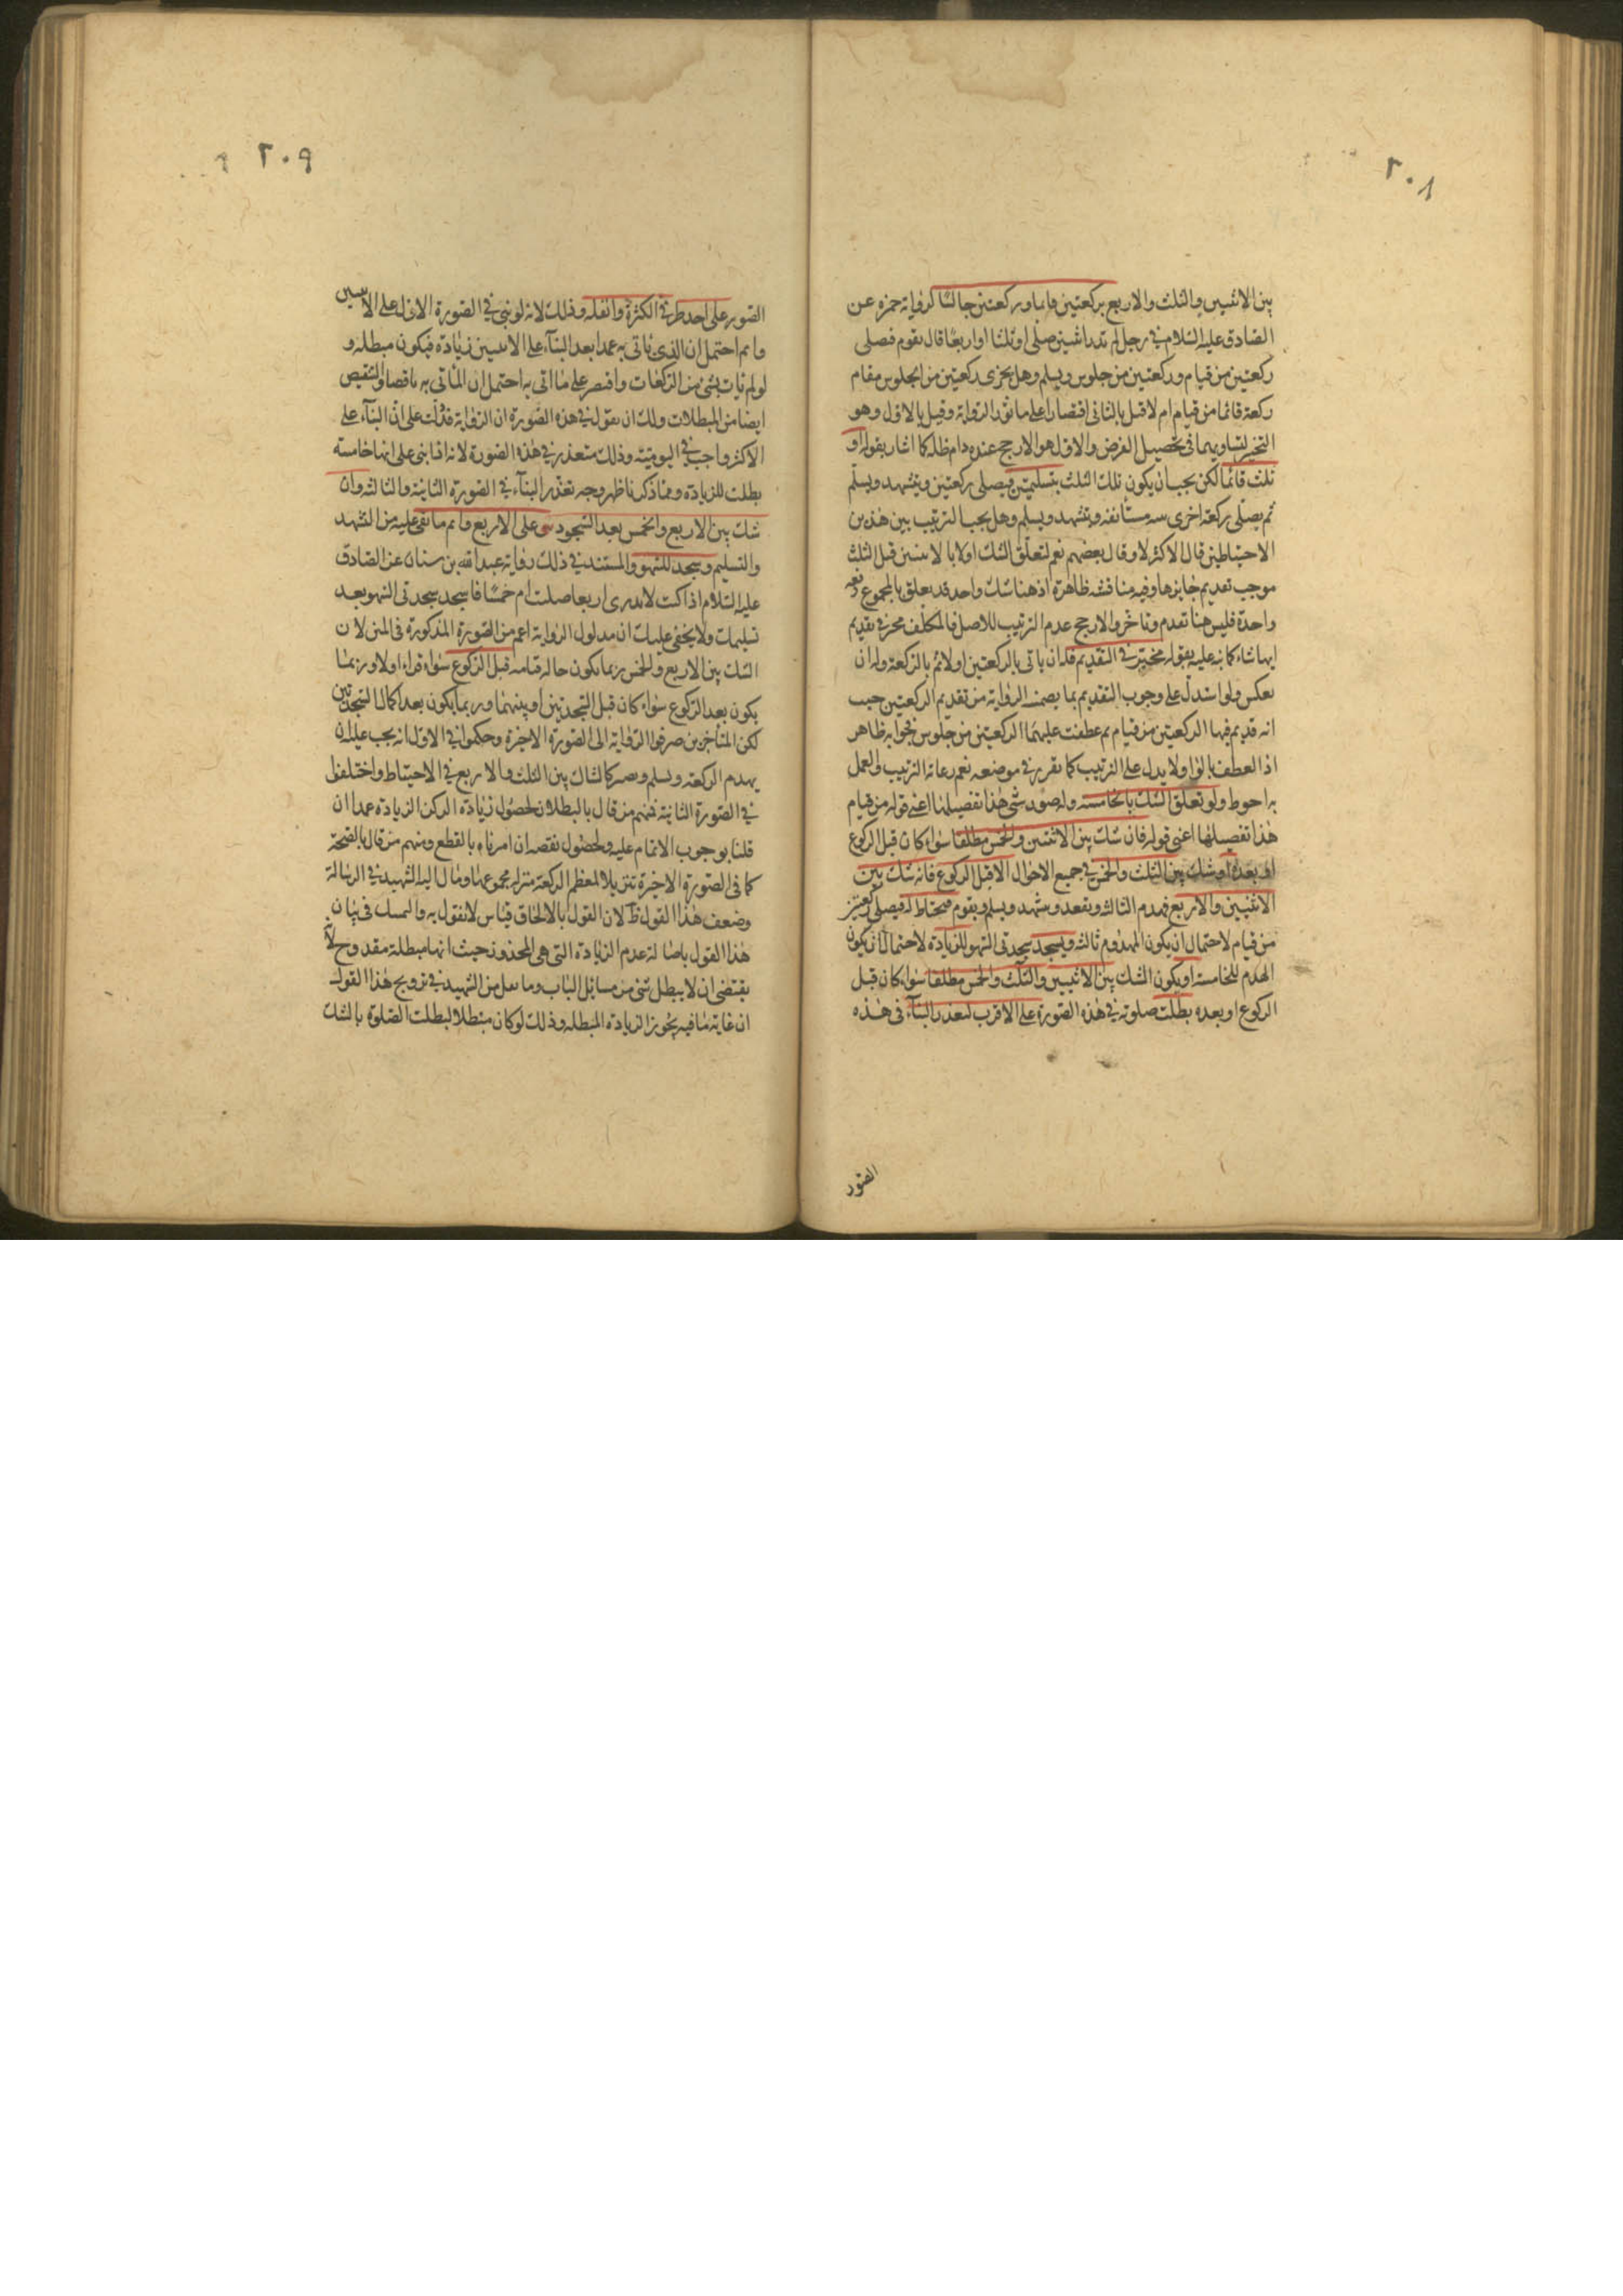 ٢٠٨
بين الاثنين والثلث والاربع بركعتين قايما وركعتين جالسًا لرواية حمزه عن
الصادق عليه السّلام في رجل لم يدر اثنين صلّى او ثلثا او اربعًا قال يقوم فصلى
ركعتين من قيام وركعتين من جلوس ويسلم وهل يجزى ركعتين من الجلوس مقام
ركعة قائما من قيام ام لا قيل بالثانى اقتصارا على مانور الرواية وقيل بالاول وهو
التخيير لتساويهما في تحصيل الغرض والاول هو الارجح عنده دام ظله كما اشار بقوله او
ثلث قائمًا لكن يجب ان يكون تلك الثلث بتسليمتين فيصلى ركعتين ويتشهد ويسلّم
ثم يصلّى ركعة اخرى مستأنفه ويتشهد ويسلم وهل يجب الترتيب بين هذين
الاحتياطين قال الاكثر لا وقال بعضهم نعم لتعلّق الشك اولا بالاثنين قبل الثلث
موجب تقديم جابرها وفيه مناقشه ظاهرة اذ هنا شك واحد قد تعلق بالمجموع دفعه
واحدة فليس هنا تقدم وتاخر والارجح عدم الترتيب للاصل فالمكلف مخير في تقديم
ايهما شاء كما نبه عليه بقوله مخيّر في التقديم فله ان ياتى بالركعتين اولا ثم بالركعة وله ان
يعكس ولو استدل على وجوب التقديم بما يضمنه الرواية من تقديم الركعتين حيث
انه قديم فيها الركعتين من قيام ثم عطفت عليهما الركعتين من جلوس فجوابه ظاهر
اذ العطف بالواو ولا يدل على الترتيب كما تقرر في موضعه نعم رعاية الترتيب والعمل
به احوط ولو تعلق الشك بالخامسه وله صور شى هذا تفصيلها اعنى قوله من قيام
هذا تفصيلها اعنى قوله فان شك بين الاثنتين والخمس مطلقا سواء كان قبل الركوع
او بعده او شك بين الثلث والخمس في جميع الاحوال الا قبل الركوع فانه شك بين
الاثنين والاربع فيهدم الثالثه ويقعد ويتشهد ويسلم ويقوم فيحتاط له فيصلى ركعتين
من قيام لاحتمال ان يكون المهدوم ثالثه ويسجد سجدتى السّهو للزيادة لاحتمال ان يكون
الهدم للخامسة او يكون الشك بين الاثنين والثلث والخمس مطلقا سواء كان قبل
الركوع او بعده بطلت صلوته في هذه الصّورة على الاقرب لتعذر البنآء فى هذه
الصّور
٢٠٩
الصّور على احد طرفى الكثرة والقله وذلك لانه لو بنى في الصّورة الاولى على الاثنين
واتم احتمل ان الذى ياتى به عمدا بعد البنآء على الاثنين زيادة فيكون مبطله و
لو لم يات بشئ من الركعات واقتصر على ما اتى به احتمل ان المأتى به ناقصا والنقيص
ايضا من المبطلات ولك ان تقول في هذه الصّورة ان الرواية قد دلت على انّ البنآء على
الاكثر واجب في اليوميّه وذلك متعذر في هذه الصّورة لانه اذا بنى على انها خامسة
بطلت للزيادة وممّا ذكرنا ظهر وجه تعذّر البنآء في الصّورة الثانية والثالثه وان
شك بين الاربع والخمس بعد السّجود بنى على الاربع واتم ما بقى عليه من التشهد
والتسليم وسجد للسّهو والمستند في ذلك رواية عبد الله بن سنان عن الصادق
عليه السّلام اذا كنت لا تدرى اربعا صليت ام خمسًا فاسجد سجدتى السّهو بعد
تسليمك ولا يخفى عليك ان مدلول الرواية اعم من الصّورة المذكورة فى المتن لان
الشك بين الاربع والخمس ربما يكون حالة قيامه قبل الرّكوع سواء قراء اولا وربما
يكون بعد الرّكوع سواء كان قبل السّجدتين او بينهما وربما يكون بعد اكمال السّجدتين
لكن المتأخرين صرفوا الرّواية الى الصّورة الاخيرة وحكموا في الاول انه يجب عليه ان
يهدم الركعة ويسلم ويصير كالشاك بين الثلث والاربع في الاحتياط واختلفوا
في الصّورة الثانية فمنهم من قال بالبطلان لحصول زيادة الركن الزيادة عمدا ان
قلنا بوجوب الاتمام عليه ولحصول نقصه ان امرناه بالقطع ومنهم من قال بالصّحة
كما فى الصّورة الاخيرة تنزيلا لمعظم الركعة منزلة مجموعها ومال اليه الشهيد في الرسالة
وضعف هذا القول ظ لان القول بالالحاق قياس لا نقول به والتمسك فى بيان
هذا القول باصالة عدم الزيادة التى هى المحذور حيث انها مبطلة مقدوح لانّه
يقتضى ان لا يبطل شئ من مسائل الباب وما نقل من الشهيد في ترويج هذا القول
ان غاية ما فيه تجويز الزيادة المبطله وذلك لو كان مبطلا لبطلت الصّلوة بالشك